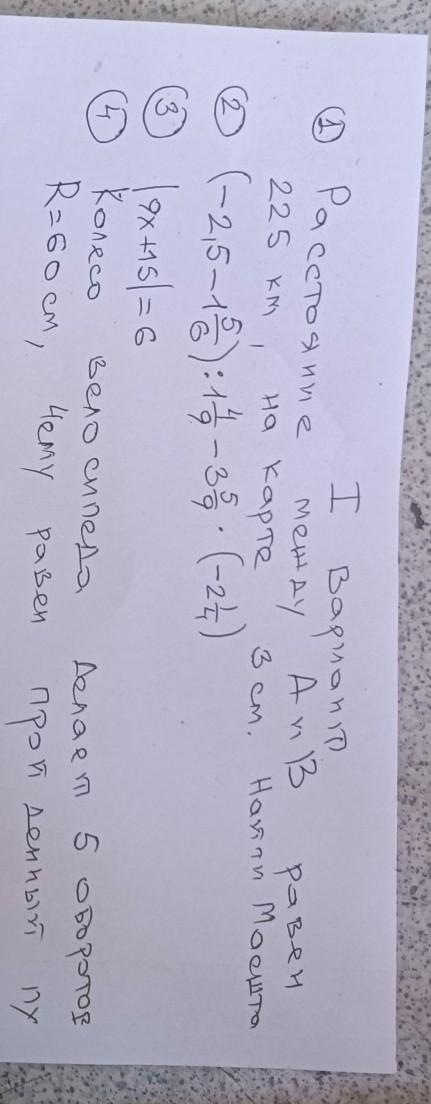 I Вариант
① Расстояние между A и B равен
225 км, на карте 3 см. Найти Масшта
② (-2,5 - 1 5/6) : 1 4/9 - 3 5/9 · (-2 1/4)
③ |9x+15| = 6
④ Колесо велосипеда делает 5 оборотов
R=60 см, Чему равен пройденный пу